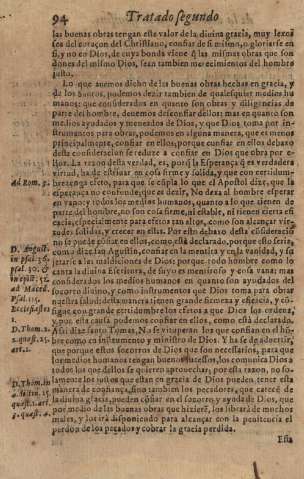 94 Tratado segundo
las buenas obras tengan este valor de la divina gracia, muy lexos
es del coraçon del Christiano, confiar de si mismo, o gloriarse en
si, y no en Dios, de cuya bondad viene q̃ las mismas obras que son
dones del mismo Dios, sean tambien merecimientos del hombre
justo.
Lo que auemos dicho de las buenas obras hechas en gracia, y
de los Santos, podemos dezir tambien de qualesquier medios hu
manos: que considerados en quanto son obras y diligencias de
parte del hombre, deuemos desconfiar dellos: mas en quanto son
medios ayudados y meneados de Dios, y que Dios toma por ins-
trumentos para obras, podemos en alguna manera, que es menos
principalmente, confiar en ellos, porque confiar en ellos debaxo
desta consideracion se reduze a confiar en Dios que obra por e-
llos. La razon desta verdad, es, porq̃ la Esperança q̃ es verdadera
virtud, ha de estribar en cosa firme y solida, y que con certidum-
Ad Rom. 5. bre tenga cierto, para que se cũpla lo que el Apostol dize, que la
esperança no confunde, que es dezir, No dexa al hombre esperar
en vano: y todos los medios humanos, quanto a lo que tienen de
parte del hombre, no son cosa firme, ni estable, ni tienen cierta efi
cacia, especialmente para efetos tan altos, como son alcançar vir-
tudes solidas, y crecer en ellas. Por esto debaxo desta cõsideraciõ
D. August. no se puede cõfiar en ellos, como està declarado, porque esto seria,
in psal. 36. como dize san Agustin, confiar en la mentira y en la vanidad, y su
psal. 30. & getarse a las maldiciones de Dios: porque todo hombre como lo
canta la diuina Escritura, de suyo es mentiroso y cosa vana: mas
ad Maced. considerados los medios humanos en quanto son ayudados del
psal. 115. socorro diuino, y como instrumentos que Dios toma para obrar
nuestra salud: desta manera tienen grande firmeza y eficacia, y cõsi-
Ecclesiastes gue con grande certidumbre los efetos a que Dios los ordena,
1. y por esta causa podemos confiar en ellos, como està declarado.
D. Thom. 2. Assi dize santo Tomas, No se vituperan los que confian en el hõ-
2. quæst. 25. bre como en instrumento y ministro de Dios. Y ha se de aduertir,
art. 1. que porque estos socorros de Dios que son necessarios, para que
los medios humanos tengan buenos sucessos, los comunica Dios a
todos los que dellos se quieren aprouechar; por esta razon, no so-
D. Thom. in lamente los justos que estan en gracia de Dios pueden tener esta
manera de confiança, sino tambien los pecadores, que carecẽ de
la diuina gracia, pueden cõfiar en el socorro, y ayuda de Dios, que
quæst. 4. por medio de las buenas obras que hizierẽ, los librarà de muchos
males, y los irà disponiendo para alcançar con la penitencia el
perdon de los pecados y cobrar la gracia perdida.
Esta